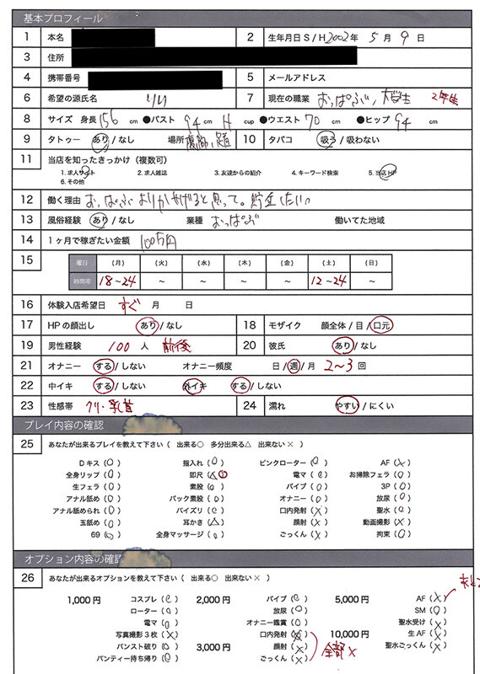 基本プロフィール
1 本名 2 生年月日 S / H 2002 年 5 月 9 日
3 住所
4 携帯番号 5 メールアドレス
6 希望の源氏名 りり 7 現在の職業 おっぱぶ, 大学生 2年生
8 サイズ 身長 156 cm ●バスト 94 cm H cup ●ウエスト 70 cm ●ヒップ 94 cm
9 タトゥー あり / なし 場所 10 タバコ 吸う / 吸わない
11 当店を知ったきっかけ(複数可)
1.求人サイト 2.求人雑誌 3.友達からの紹介 4.キーワード検索 5.当店HP
6.その他
12 働く理由 おっぱぶよりかせげると思って。貯金したい
13 風俗経験 あり / なし 業種 おっぱぶ 働いてた地域
14 1ヶ月で稼ぎたい金額 100万円
15 曜日 (月) (火) (水) (木) (金) (土) (日)
時間帯 18~24 ~ ~ ~ ~ 12~24 ~
16 体験入店希望日 すぐ 月 日
17 HPの顔出し あり / なし 18 モザイク 顔全体 / 目 / 口元
19 男性経験 100 人 前後 20 彼氏 あり / なし
21 オナニー する / しない オナニー頻度 日 / 週 / 月 2~3 回
22 中イキ する / しない 外イキ する / しない
23 性感帯 クリ・乳首 24 濡れ やすい / にくい
プレイ内容の確認
25 あなたが出来るプレイを教えて下さい ( 出来る○ 多分出来る△ 出来ない× )
Dキス (○) 指入れ (○) ピンクローター (○) AF (×)
全身リップ (○) 即尺 (△) 電マ (○) お掃除フェラ (○)
生フェラ (○) 素股 (○) バイブ (○) 3P (○)
アナル舐め (○) バック素股 (○) オナニー (○) 放尿 (○)
アナル舐められ (○) パイズリ (○) 口内発射 (×) 聖水 (○)
玉舐め (○) 耳かき (△) 顔射 (×) 動画撮影 (×)
69 (○) 全身マッサージ (○) ごっくん (×) 拘束 (○)
オプション内容の確認
26 あなたが出来るオプションを教えて下さい ( 出来る○ 出来ない× )
1,000円 コスプレ (○) 2,000円 バイブ (○) 5,000円 AF (×)
ローター (○) 放尿 (○) SM (○)
電マ (○) オナニー鑑賞 (○) 聖水受け (×)
写真撮影3枚 (×) 口内発射 (×) 10,000円 生AF (×)
パンスト破り (○) 3,000円 顔射 (×) 全部× 聖水ごっくん (×)
パンティー持ち帰り (○) ごっくん (×)